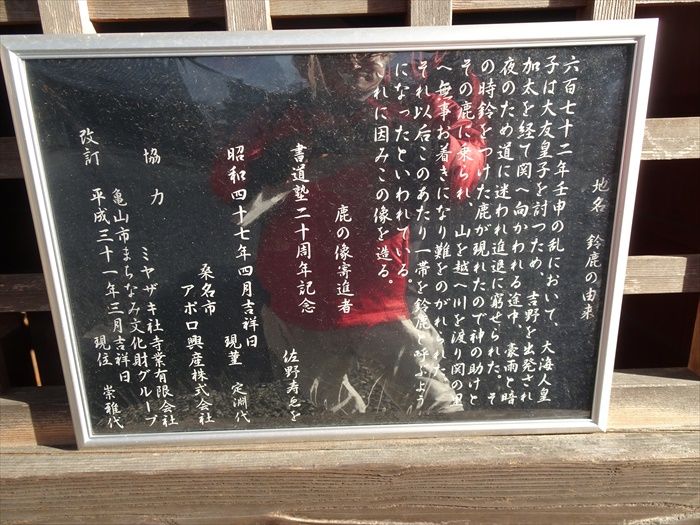 地名 鈴鹿の由来
六百七十二年壬申の乱において、大海人皇
子は大友皇子を討つため、吉野を出発され
加太を経て関へ向かわれる途中、豪雨と暗
夜のため道に迷われ進退に窮せられた。そ
の時鈴をつけた鹿が現れたので神の助けと
その鹿に乗られ、山を越へ川を渡り関の里
へ無事お着きになり難をのがれられた。
それ以後このあたり一帯を鈴鹿と呼ぶよう
になったといわれている。
これに因みこの像を造る。
鹿の像寄進者
書道塾二十周年記念 佐野寿
昭和四十七年四月吉祥日 現董 定淵代
桑名市
アポロ興産株式会社
協力 ミヤザキ社寺業有限会社
亀山市まちなみ文化財グループ
改訂 平成三十一年三月吉祥日
現住 崇雅代